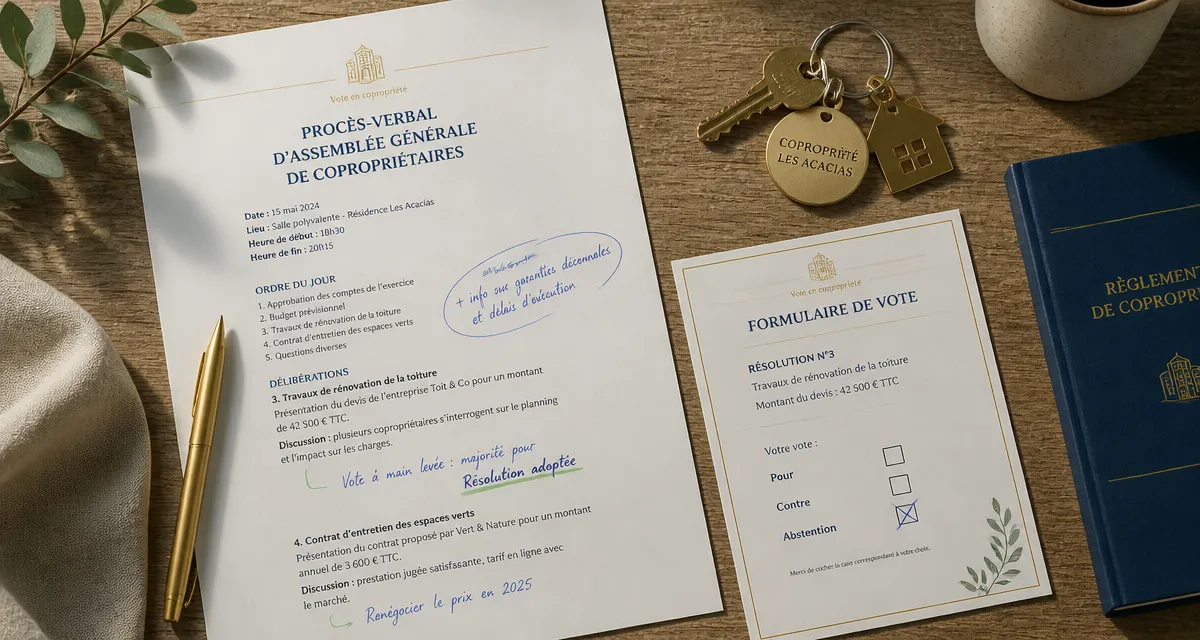 Vote en copropriété
PROCÈS-VERBAL
D'ASSEMBLÉE GÉNÉRALE
DE COPROPRIÉTAIRES
Date : 15 mai 2024
Lieu : Salle polyvalente - Résidence Les Acacias
Heure de début : 18h30
Heure de fin : 20h15
ORDRE DU JOUR
1. Approbation des comptes de l'exercice
2. Budget prévisionnel
3. Travaux de rénovation de la toiture
4. Contrat d'entretien des espaces verts
5. Questions diverses
+ info sur garanties décennales
et délais d'exécution
DÉLIBÉRATIONS
3. Travaux de rénovation de la toiture
Présentation du devis de l'entreprise Toit & Co pour un montant
de 42 500 € TTC.
Discussion : plusieurs copropriétaires s'interrogent sur le planning
et l'impact sur les charges.
Vote à main levée : majorité pour
Résolution adoptée
4. Contrat d'entretien des espaces verts
Présentation du contrat proposé par Vert & Nature pour un montant
annuel de 3 600 € TTC.
Discussion : prestation jugée satisfaisante, tarif en ligne avec
le marché.
Renégocier le prix en 2025
COPROPRIÉTÉ
LES ACACIAS
Vote en copropriété
FORMULAIRE DE VOTE
RÉSOLUTION N°3
Travaux de rénovation de la toiture
Montant du devis : 42 500 € TTC
Votre vote :
Pour
Contre
Abstention
Merci de cocher la case correspondant à votre choix.
RÈGLEMENT
DE COPROPRI